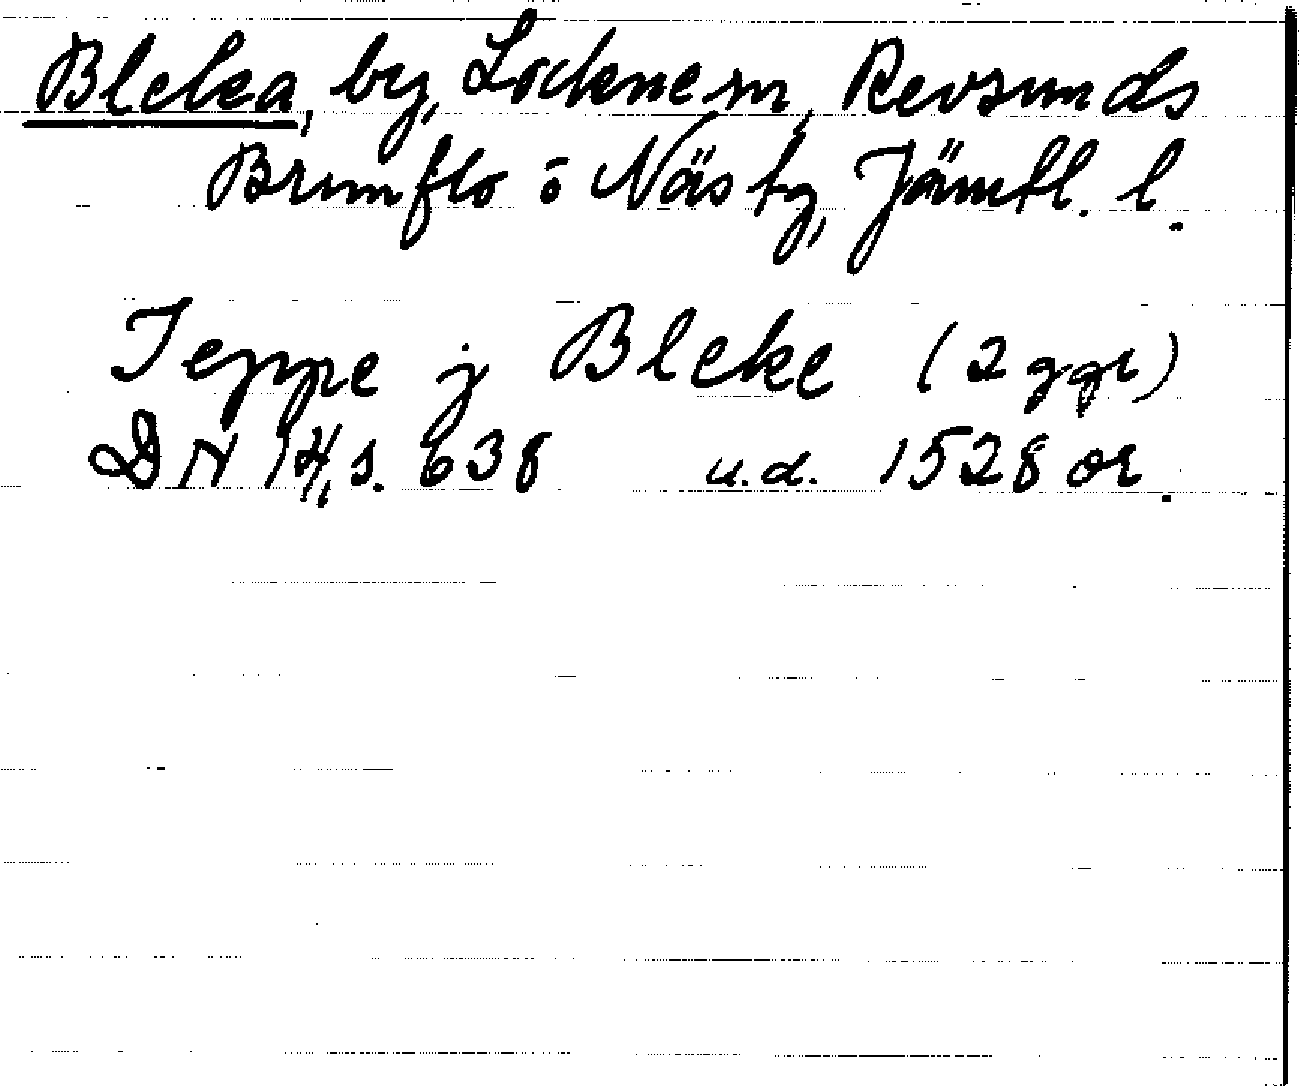 Bleka, by, Lockne sn, Revsunds
Brunflo o Näs tg, Jämtl. l.
Jeppe j Bleke (2 ggr)
DN 14, s. 638 u.d. 1528 or.